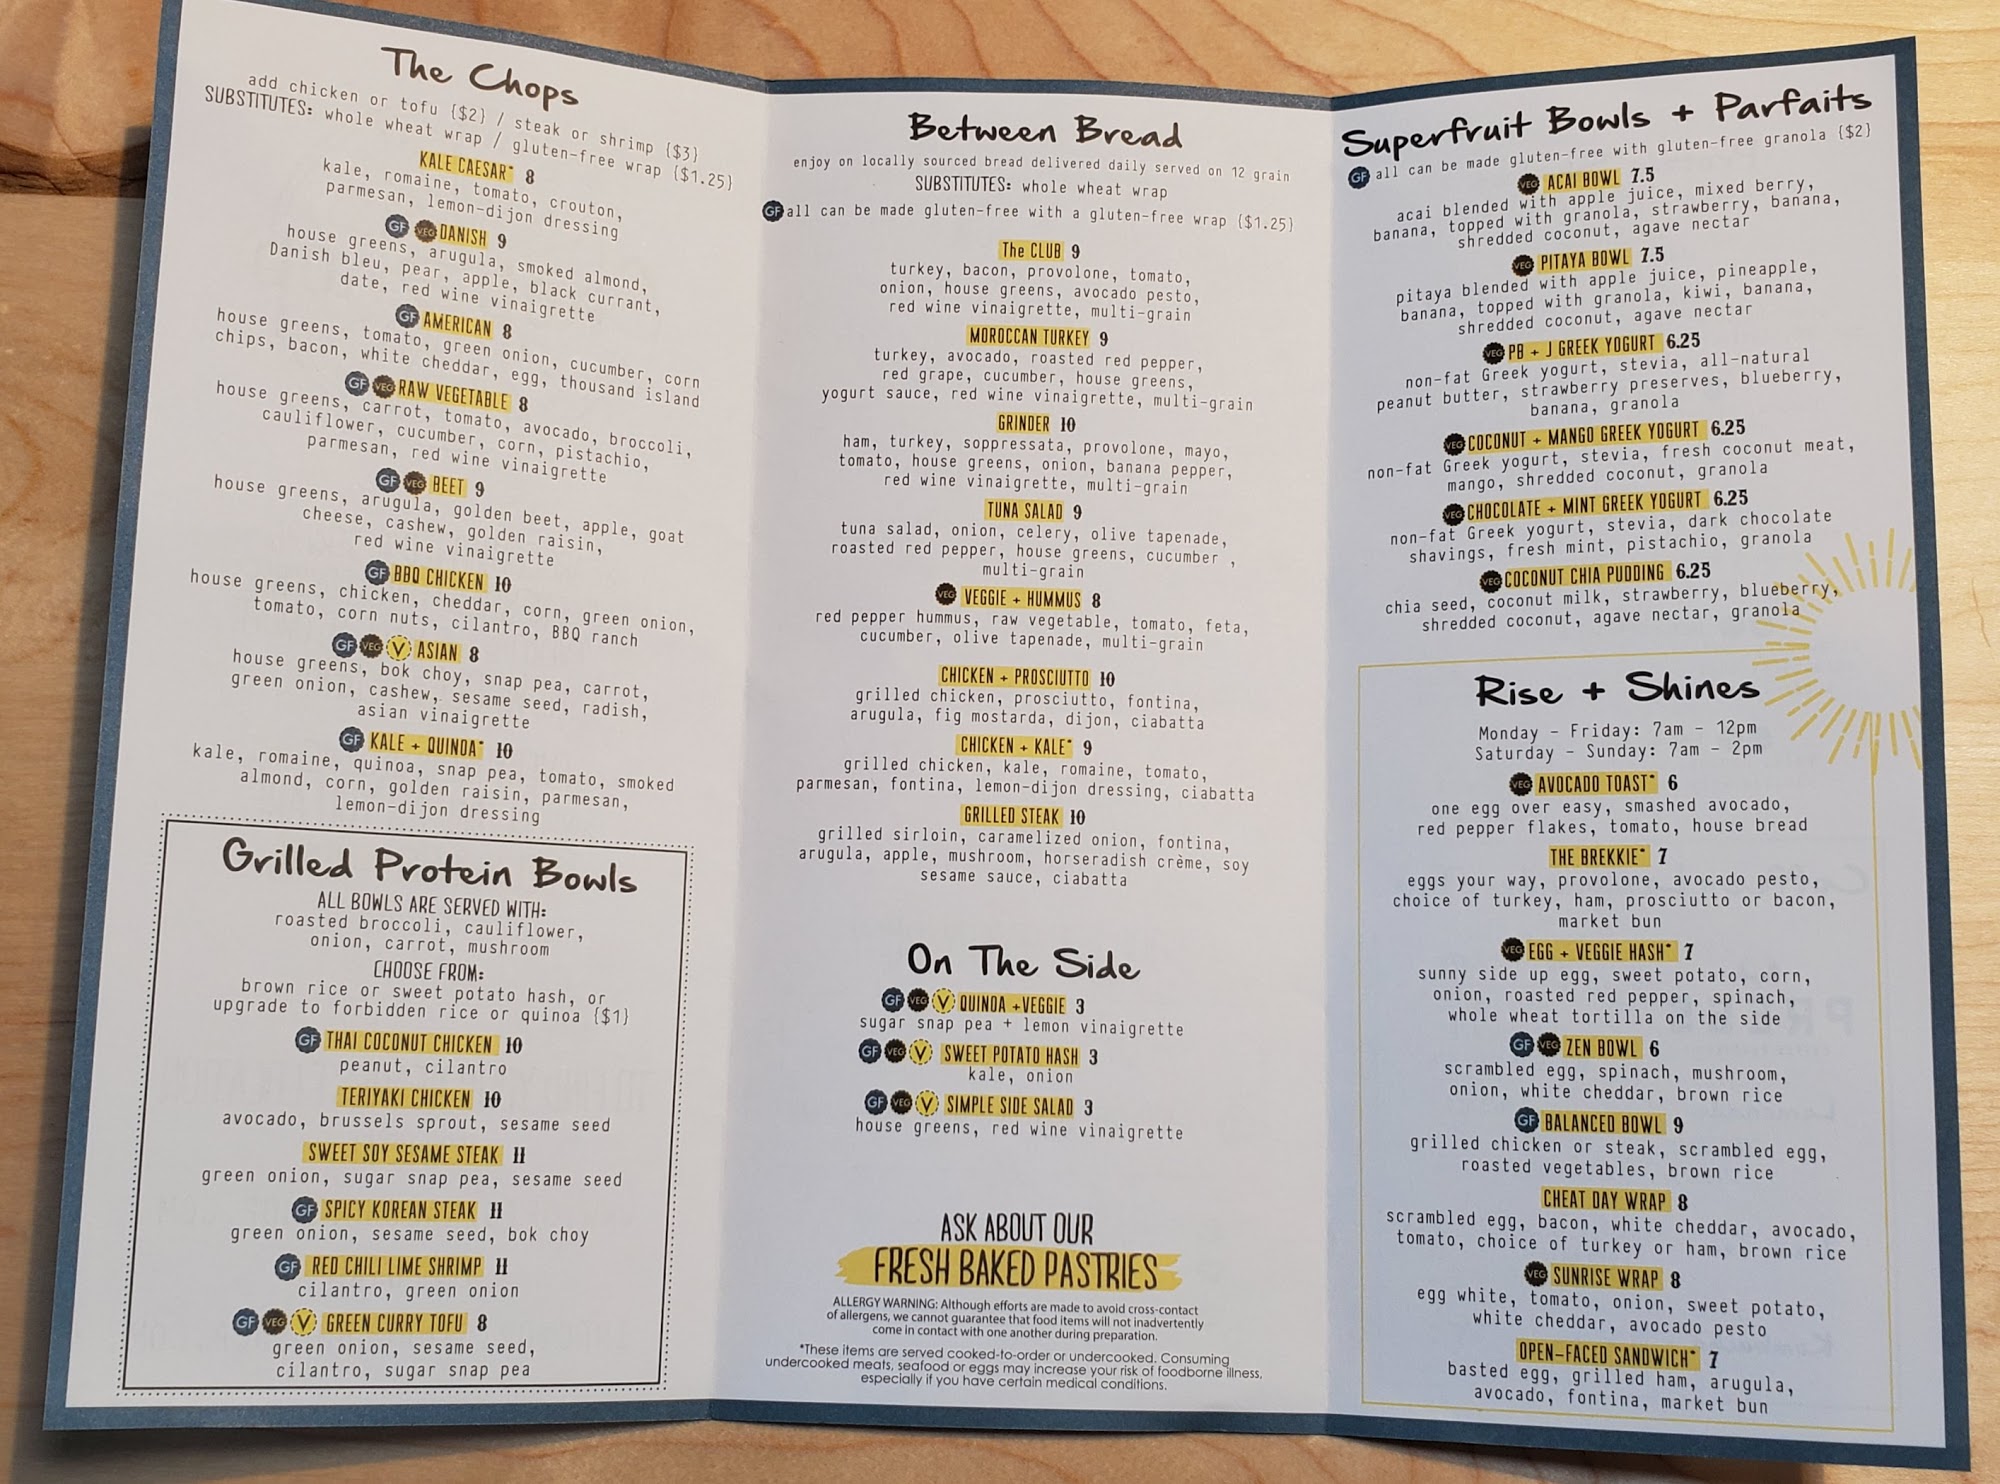 The Chops
add chicken or tofu {$2} / steak or shrimp {$3}
SUBSTITUTES: whole wheat wrap / gluten-free wrap {$1.25}
KALE CAESAR* 8
kale, romaine, tomato, crouton,
parmesan, lemon-dijon dressing
GF VEG DANISH 9
house greens, arugula, smoked almond,
Danish bleu, pear, apple, black currant,
date, red wine vinaigrette
GF AMERICAN 8
house greens, tomato, green onion, cucumber, corn
chips, bacon, white cheddar, egg, thousand island
GF VEG RAW VEGETABLE 8
house greens, carrot, tomato, avocado, broccoli,
cauliflower, cucumber, corn, pistachio,
parmesan, red wine vinaigrette
GF VEG BEET 9
house greens, arugula, golden beet, apple, goat
cheese, cashew, golden raisin,
red wine vinaigrette
GF BBQ CHICKEN 10
house greens, chicken, cheddar, corn, green onion,
tomato, corn nuts, cilantro, BBQ ranch
GF VEG V ASIAN 8
house greens, bok choy, snap pea, carrot,
green onion, cashew, sesame seed, radish,
asian vinaigrette
GF KALE + QUINOA* 10
kale, romaine, quinoa, snap pea, tomato, smoked
almond, corn, golden raisin, parmesan,
lemon-dijon dressing
Grilled Protein Bowls
ALL BOWLS ARE SERVED WITH:
roasted broccoli, cauliflower,
onion, carrot, mushroom
CHOOSE FROM:
brown rice or sweet potato hash, or
upgrade to forbidden rice or quinoa {$1}
GF THAI COCONUT CHICKEN 10
peanut, cilantro
TERIYAKI CHICKEN 10
avocado, brussels sprout, sesame seed
SWEET SOY SESAME STEAK 11
green onion, sugar snap pea, sesame seed
GF SPICY KOREAN STEAK 11
green onion, sesame seed, bok choy
GF RED CHILI LIME SHRIMP 11
cilantro, green onion
GF VEG V GREEN CURRY TOFU 8
green onion, sesame seed,
cilantro, sugar snap pea
Between Bread
enjoy on locally sourced bread delivered daily served on 12 grain
SUBSTITUTES: whole wheat wrap
GF all can be made gluten-free with a gluten-free wrap {$1.25}
The CLUB 9
turkey, bacon, provolone, tomato,
onion, house greens, avocado pesto,
red wine vinaigrette, multi-grain
MOROCCAN TURKEY 9
turkey, avocado, roasted red pepper,
red grape, cucumber, house greens,
yogurt sauce, red wine vinaigrette, multi-grain
GRINDER 10
ham, turkey, soppressata, provolone, mayo,
tomato, house greens, onion, banana pepper,
red wine vinaigrette, multi-grain
TUNA SALAD 9
tuna salad, onion, celery, olive tapenade,
roasted red pepper, house greens, cucumber ,
multi-grain
VEG VEGGIE + HUMMUS 8
red pepper hummus, raw vegetable, tomato, feta,
cucumber, olive tapenade, multi-grain
CHICKEN + PROSCIUTTO 10
grilled chicken, prosciutto, fontina,
arugula, fig mostarda, dijon, ciabatta
CHICKEN + KALE* 9
grilled chicken, kale, romaine, tomato,
parmesan, fontina, lemon-dijon dressing, ciabatta
GRILLED STEAK 10
grilled sirloin, caramelized onion, fontina,
arugula, apple, mushroom, horseradish crème, soy
sesame sauce, ciabatta
On The Side
GF VEG V QUINOA +VEGGIE 3
sugar snap pea + lemon vinaigrette
GF VEG V SWEET POTATO HASH 3
kale, onion
GF VEG V SIMPLE SIDE SALAD 3
house greens, red wine vinaigrette
ASK ABOUT OUR
FRESH BAKED PASTRIES
ALLERGY WARNING: Although efforts are made to avoid cross-contact
of allergens, we cannot guarantee that food items will not inadvertently
come in contact with one another during preparation.
*These items are served cooked-to-order or undercooked. Consuming
undercooked meats, seafood or eggs may increase your risk of foodborne illness,
especially if you have certain medical conditions.
Superfruit Bowls + Parfaits
GF all can be made gluten-free with gluten-free granola {$2}
VEG ACAI BOWL 7.5
acai blended with apple juice, mixed berry,
banana, topped with granola, strawberry, banana,
shredded coconut, agave nectar
VEG PITAYA BOWL 7.5
pitaya blended with apple juice, pineapple,
banana, topped with granola, kiwi, banana,
shredded coconut, agave nectar
VEG PB + J GREEK YOGURT 6.25
non-fat Greek yogurt, stevia, all-natural
peanut butter, strawberry preserves, blueberry,
banana, granola
VEG COCONUT + MANGO GREEK YOGURT 6.25
non-fat Greek yogurt, stevia, fresh coconut meat,
mango, shredded coconut, granola
VEG CHOCOLATE + MINT GREEK YOGURT 6.25
non-fat Greek yogurt, stevia, dark chocolate
shavings, fresh mint, pistachio, granola
VEG COCONUT CHIA PUDDING 6.25
chia seed, coconut milk, strawberry, blueberry,
shredded coconut, agave nectar, granola
Rise + Shines
Monday - Friday: 7am - 12pm
Saturday - Sunday: 7am - 2pm
VEG AVOCADO TOAST* 6
one egg over easy, smashed avocado,
red pepper flakes, tomato, house bread
THE BREKKIE* 7
eggs your way, provolone, avocado pesto,
choice of turkey, ham, prosciutto or bacon,
market bun
VEG EGG + VEGGIE HASH* 7
sunny side up egg, sweet potato, corn,
onion, roasted red pepper, spinach,
whole wheat tortilla on the side
GF VEG ZEN BOWL 6
scrambled egg, spinach, mushroom,
onion, white cheddar, brown rice
GF BALANCED BOWL 9
grilled chicken or steak, scrambled egg,
roasted vegetables, brown rice
CHEAT DAY WRAP 8
scrambled egg, bacon, white cheddar, avocado,
tomato, choice of turkey or ham, brown rice
VEG SUNRISE WRAP 8
egg white, tomato, onion, sweet potato,
white cheddar, avocado pesto
OPEN-FACED SANDWICH* 7
basted egg, grilled ham, arugula,
avocado, fontina, market bun